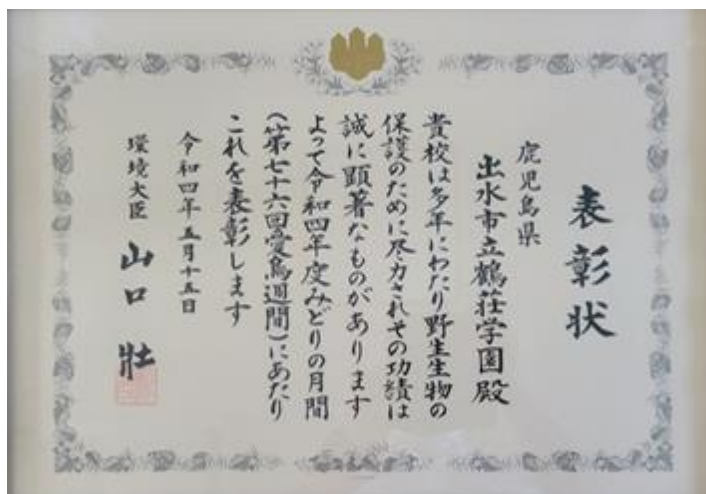 表彰状
鹿児島県
出水市立鶴荘学園殿
貴校は多年にわたり野生生物の
保護のために尽力されその功績は
誠に顕著なものがあります
よって令和四年度みどりの月間
(第七十六回愛鳥週間)にあたり
これを表彰します
令和四年五月十五日
環境大臣 山口 壯